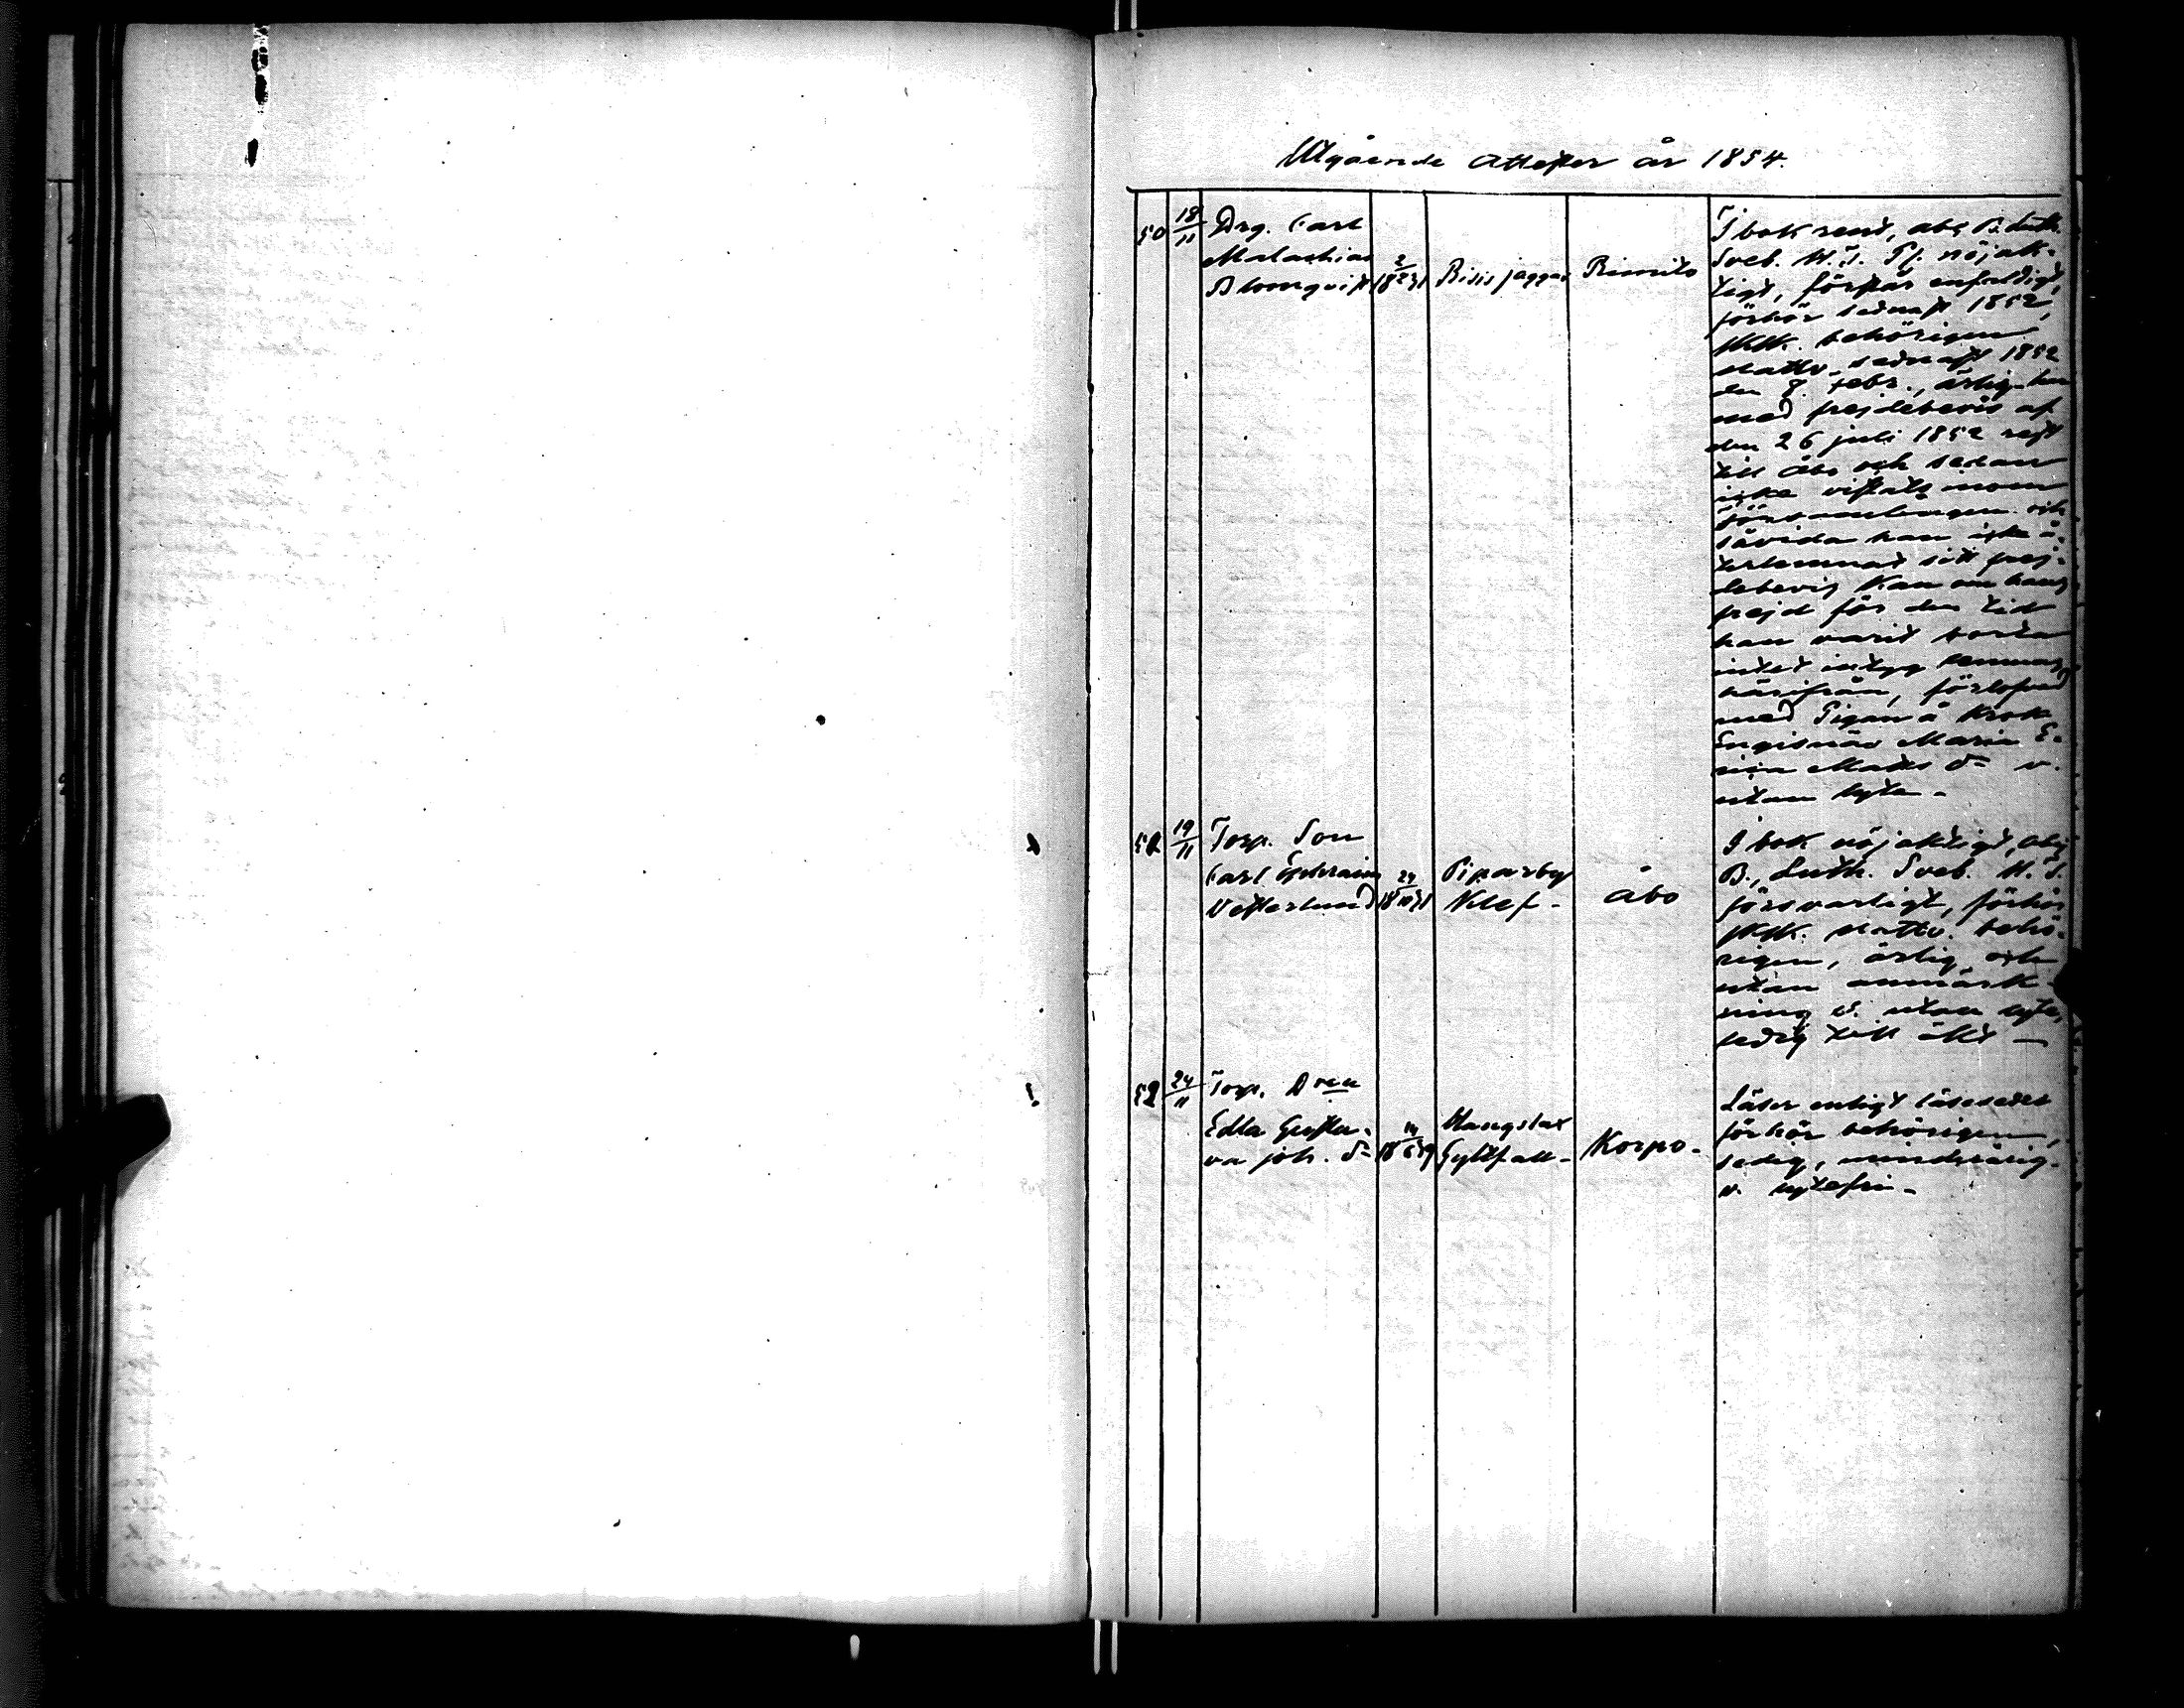 Utgående attester år 1854.
50 18/11 Drg. Carl
Malachias
Blomqvist 18 2/2 31 Risis jaggas Rimito
I bok rent, abc B. Luth.
Sveb. H. T. Pl. nöjak-
tigt, förstår enfaldigt,
förhör sednast 1852,
behörigen
nattv. sednast 1852
den 7. febr., ärlig han
med frejdebevis af
den 26 juli 1852 rest
till Åbo och sedan
icke vistats inom
församlingen och
såvida han icke å-
terlemnat sitt frej-
debevis kan om hans
frejd för den tid
han varit borta
intet intyg lemnas
härifrån, förlofvad
med Pigan å Krok
Engisnäs Maria E-
rica Mats dr v.
utan lyte.
51 19/11 Torp. Son
Carl Ephraim
Vesterlund 18 24/10 31 Piparby
Klef. Åbo
I bok nöjaktigt, abc
B., Luth. Sveb. H. T.
försvarligt, förhör
nattv. behö-
rigen, ärlig och
utan anmärk-
ning v. utan lyte,
ledig till äkt
52 24/11 Torp. Dren
Edla Gusta-
va Joh. dr 18 14/6 39 Hangslax
Gyttfall Korpo.
Läser enligt läsesedel
förhör behörigen,
ledig, minderårig.
v. lytefri.